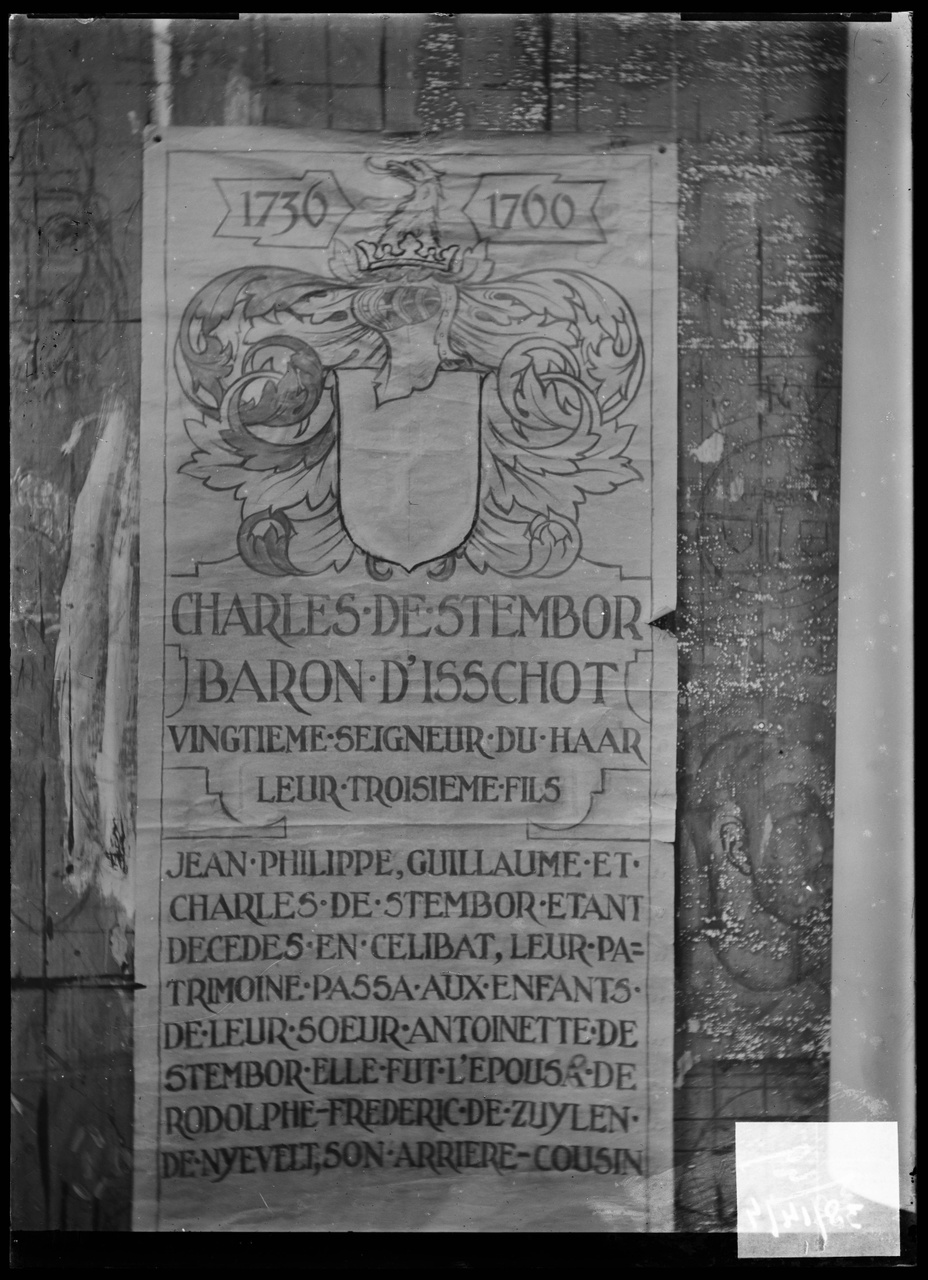 1736 1760
CHARLES·DE·STEMBOR
BARON·D'ISSCHOT
VINGTIEME·SEIGNEUR·DU·HAAR
LEUR·TROISIEME·FILS
JEAN·PHILIPPE, GUILLAUME·ET·
CHARLES·DE·STEMBOR·ETANT
DECEDES·EN·CELIBAT, LEUR·PA=
TRIMOINE·PASSA·AUX·ENFANTS·
DE·LEUR·SOEUR·ANTOINETTE·DE
STEMBOR·ELLE·FUT·L'EPOUSE·DE
RODOLPHE-FREDERIC·DE·ZUYLEN·
DE·NYEVELT, SON·ARRIERE-COUSIN